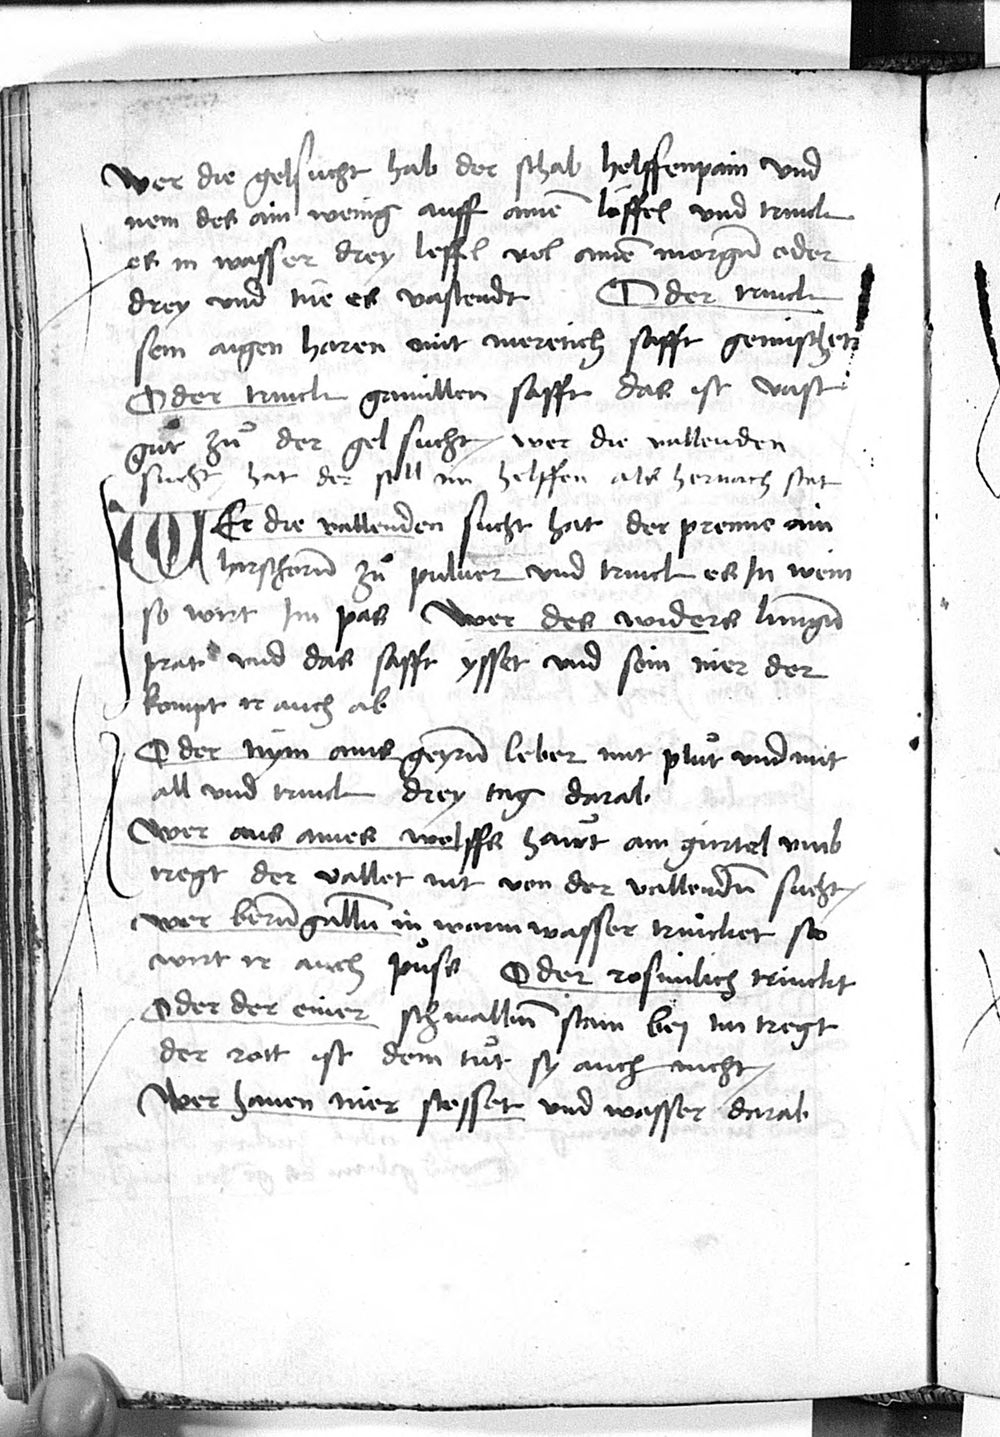 Wer die gelsucht hab der schab helffenpain vnd
nem des ain wenig auff ainē löffel vnd trinck
es in wasser drey leffel vol ainē morgn̄ oder
drey vnd tüe es vastendt Oder trinck
sein aigen haren mit merretich safft gemischett
Oder trinck gamillen safft das ist vast
guͦt zuͦ der gel sucht / wer die vallenden
sucht hat der soll im helffen als hernach stat
WEr die vallenden sucht hat der prenne ain
hirschorn̄ zuͦ puluer vnd trinck es In wein
so wirt Im pas Wer des widers lungn̄
prat vnd das safft ysset vnd sein nier der
kompt er auch ab
Oder nym ains geyrn̄ leber mit pluͦt vnd mit
all vnd trinck drey tag darab
Wer aus aines wolffs hawt ain gürtel vmb
tregt der vallet nit von der vallendn̄ sucht /
wer bern̄ galln̄ in warm wasser trincket so
wirt er auch puͦss Oder rosmilich trinckt
Oder der einer schwalbm̄ stain bey im tregt
der rott ist dem tuͦt sy auch nicht /
Wer hanen nier stosset vnd wasser darab